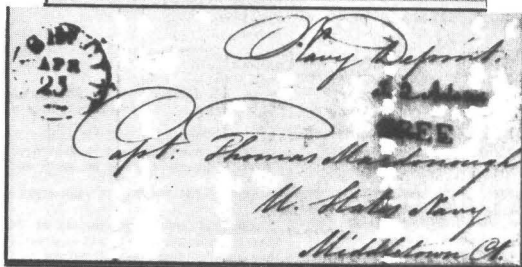 APR
23
Navy Depmt.
FREE
Capt. Thomas Macdonough
U. States Navy
Middletown Ct.